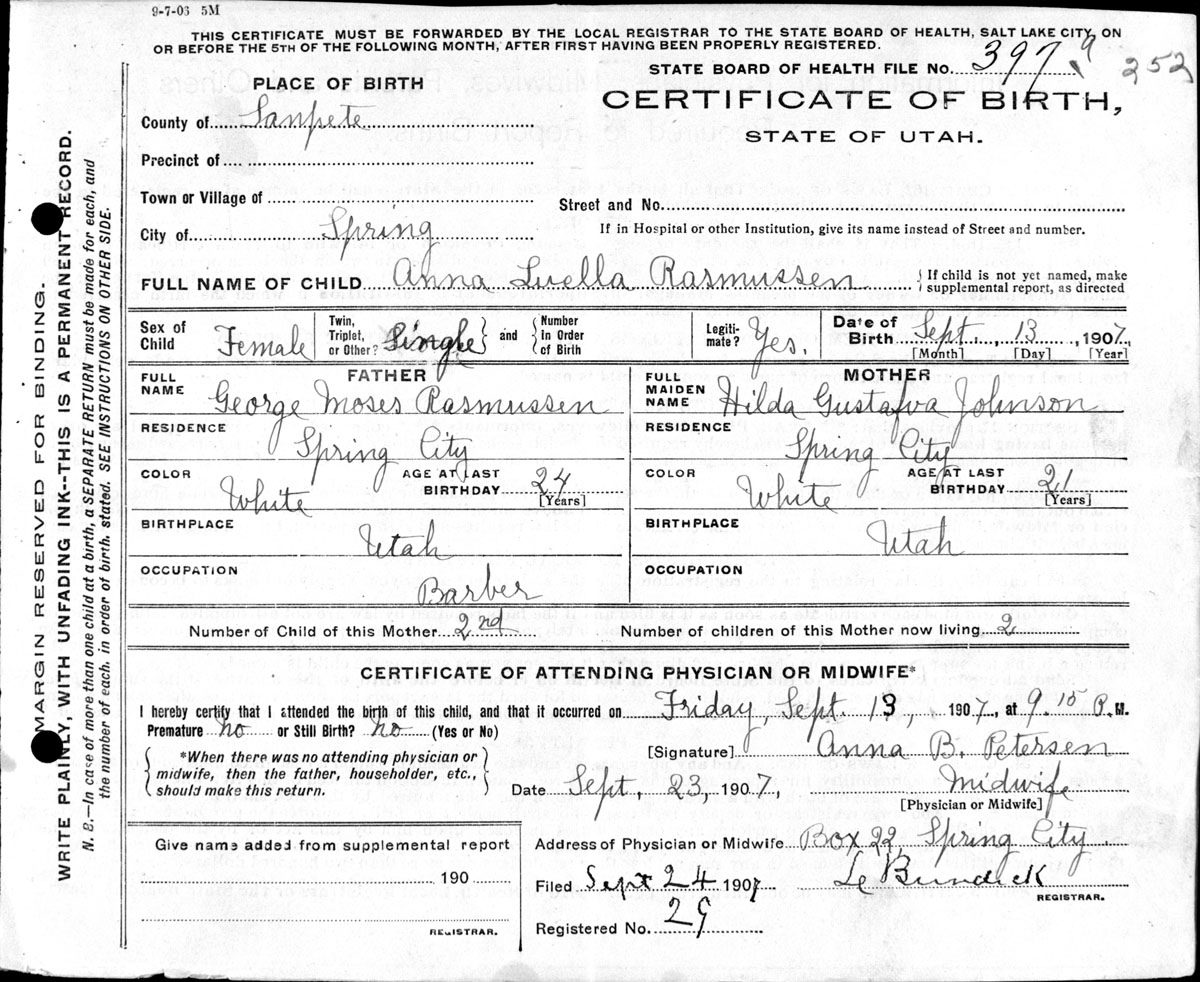 9-7-03 5M
THIS CERTIFICATE MUST BE FORWARDED BY THE LOCAL REGISTRAR TO THE STATE BOARD OF HEALTH, SALT LAKE CITY, ON
OR BEFORE THE 5TH OF THE FOLLOWING MONTH, AFTER FIRST HAVING BEEN PROPERLY REGISTERED.
STATE BOARD OF HEALTH FILE No. 397 9 252
PLACE OF BIRTH
CERTIFICATE OF BIRTH,
STATE OF UTAH.
County of Sanpete
Precinct of
Town or Village of
Street and No.
City of Spring
If in Hospital or other Institution, give its name instead of Street and number.
FULL NAME OF CHILD Anna Luella Rasmussen {If child is not yet named, make
supplemental report, as directed
Sex of Child Female Twin, Triplet, or Other? Single } and { Number In Order of Birth Legiti-mate? Yes. Date of Birth Sept., 13, 1907.
[Month] [Day] [Year]
FATHER
FULL NAME George Moses Rasmussen
RESIDENCE Spring City
COLOR White AGE AT LAST BIRTHDAY 24 [Years]
BIRTHPLACE Utah
OCCUPATION Barber
MOTHER
FULL MAIDEN NAME Hilda Gustafva Johnson
RESIDENCE Spring City
COLOR White AGE AT LAST BIRTHDAY 21 [Years]
BIRTHPLACE Utah
OCCUPATION
Number of Child of this Mother 2nd Number of children of this Mother now living 2
CERTIFICATE OF ATTENDING PHYSICIAN OR MIDWIFE*
I hereby certify that I attended the birth of this child, and that it occurred on Friday, Sept. 13, 1907, at 9.15 P. M.
Premature? no or Still Birth? no (Yes or No)
{*When there was no attending physician or
midwife, then the father, householder, etc.,
should make this return.}
[Signature] Anna B. Petersen
Date Sept. 23, 1907, Midwife
[Physician or Midwife]
Give name added from supplemental report
190
REGISTRAR.
Address of Physician or Midwife Box 22, Spring City
Filed Sept 24 1907 Le Bundick
REGISTRAR.
Registered No. 29
MARGIN RESERVED FOR BINDING.
WRITE PLAINLY, WITH UNFADING INK--THIS IS A PERMANENT RECORD.
N. B.—In case of more than one child at a birth, a SEPARATE RETURN must be made for each, and
the number of each, in order of birth, stated. SEE INSTRUCTIONS ON OTHER SIDE.